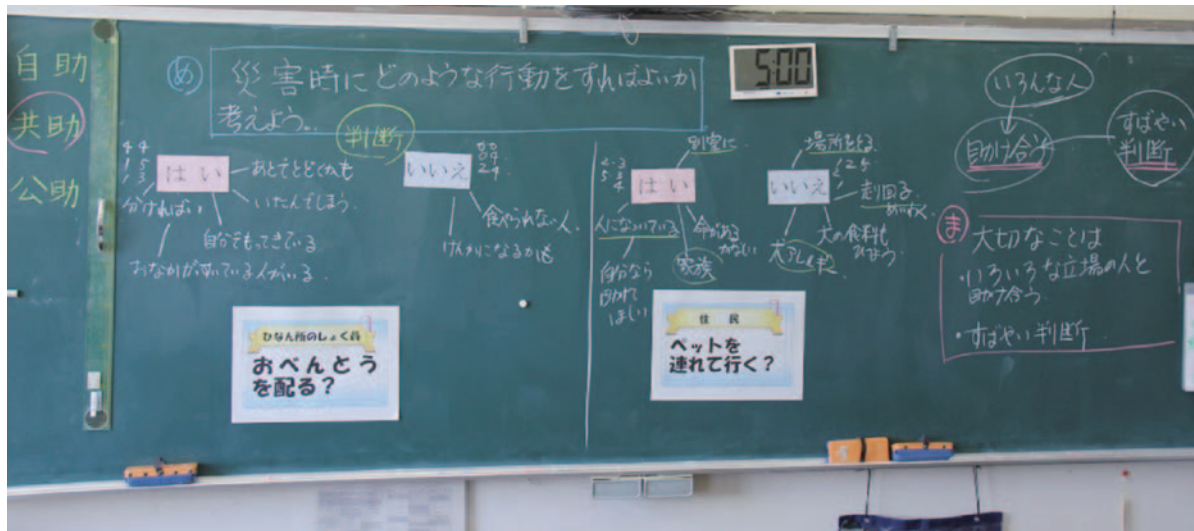 自助
共助
公助
め
災害時にどのような行動をすればよいか
考えよう。
判断
4 4
1 5
1 3
はい
あとでとどくかも
いたんでしまう。
分ければいい
自分でもってきている
おなかがすいている人がいる。
いいえ
0 0
0 4
2 4
食べられない人。
けんかになるかも
ひなん所のしょく員
おべんとう
を配る?
はい
別室に
人になついている
命がある
家族
自分なら
助れて
ほしい
いいえ
場所をとる
走り回る
犬の食料も
犬アレルギー
住民
ペットを
連れて行く?
5:00
いろんな人
助け合う
すばやい
判断
ま
大切なことは
・いろいろな立場の人と
助け合う
・すばやい判断